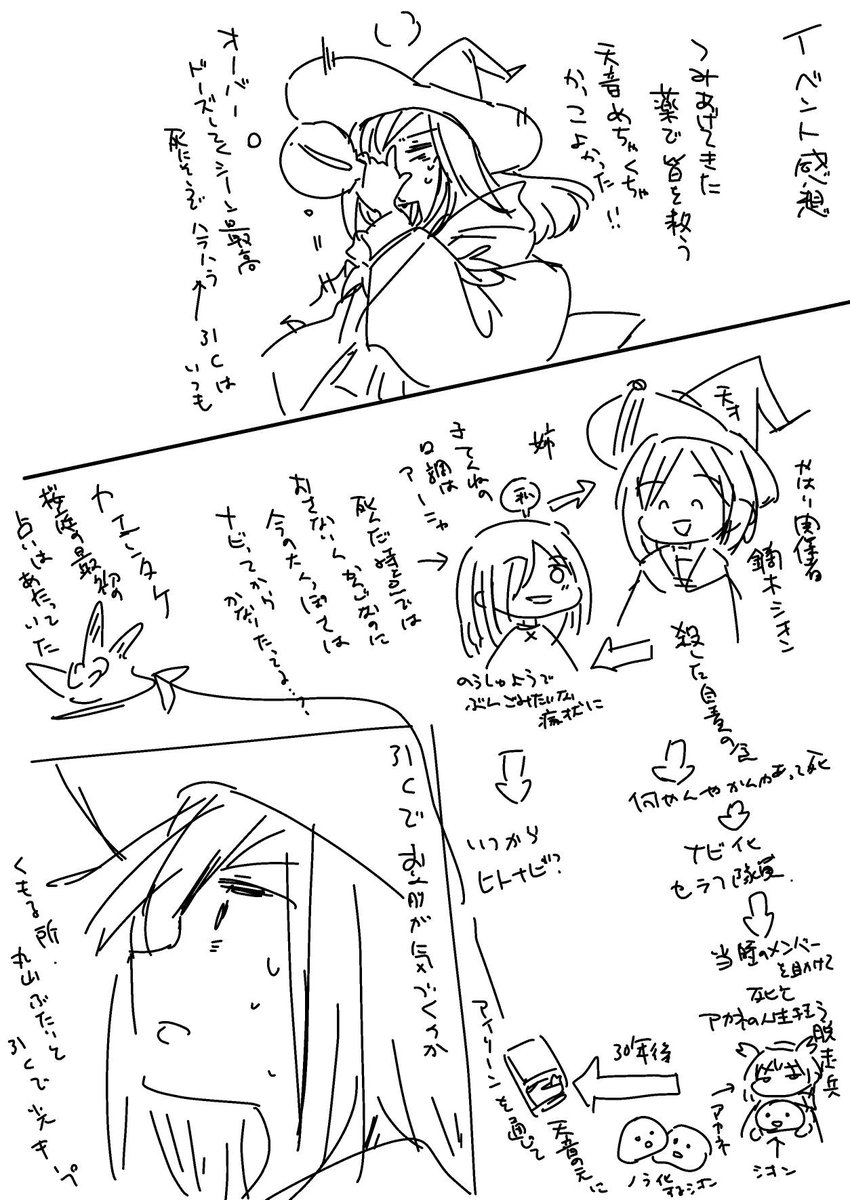 イベント感想
つみあげてきた
薬で皆を救う
天音めちゃくちゃ
かっこよかった!!
オーバー
ドーズしてくシーン最高
死にそうでハラハラ
31Cは
いつも
天才
やはり関係者
鏑木シオン
姉
私
口調は
アーニャ
死んだ時点では
おさないんかんじなのに
今の大人っぽては
ナビってから
かなりたってる…?
カエンタケ
桜庭の最初の
占いはあたっていた
殺した自責の念
何やんやかんやあって死
ナビ化
セラフ隊員
当時のメンバー
を助けて
死と
アカネの人生狂う
脱走兵
アカネ
シオン
のうしゅようで
ぶんごみたいな
病状に
いつから
ヒトナビ?
30年後
天音の元に
アイリーンを通じて
31Cでお前が気づくのか
くもる所、
丸山ぶたいと
31Cで